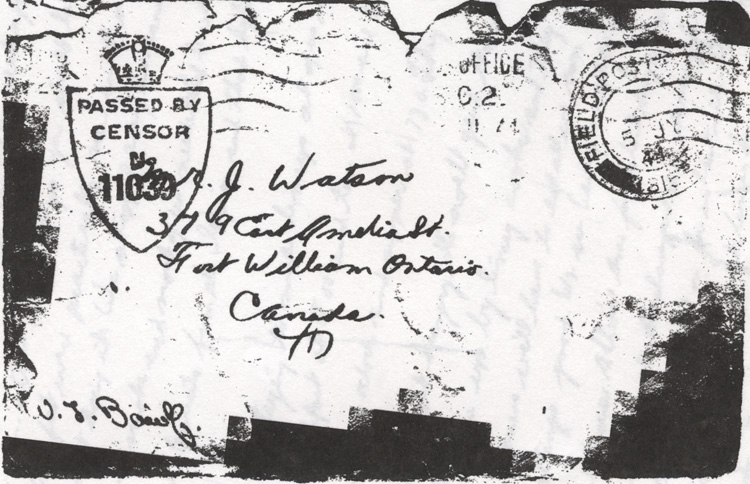 PASSED BY
CENSOR
No
11039
OFFICE
C.2.
FIELD POST
5 JY
44
J. Watson
379 East Amelia St.
Fort William Ontario.
Canada.